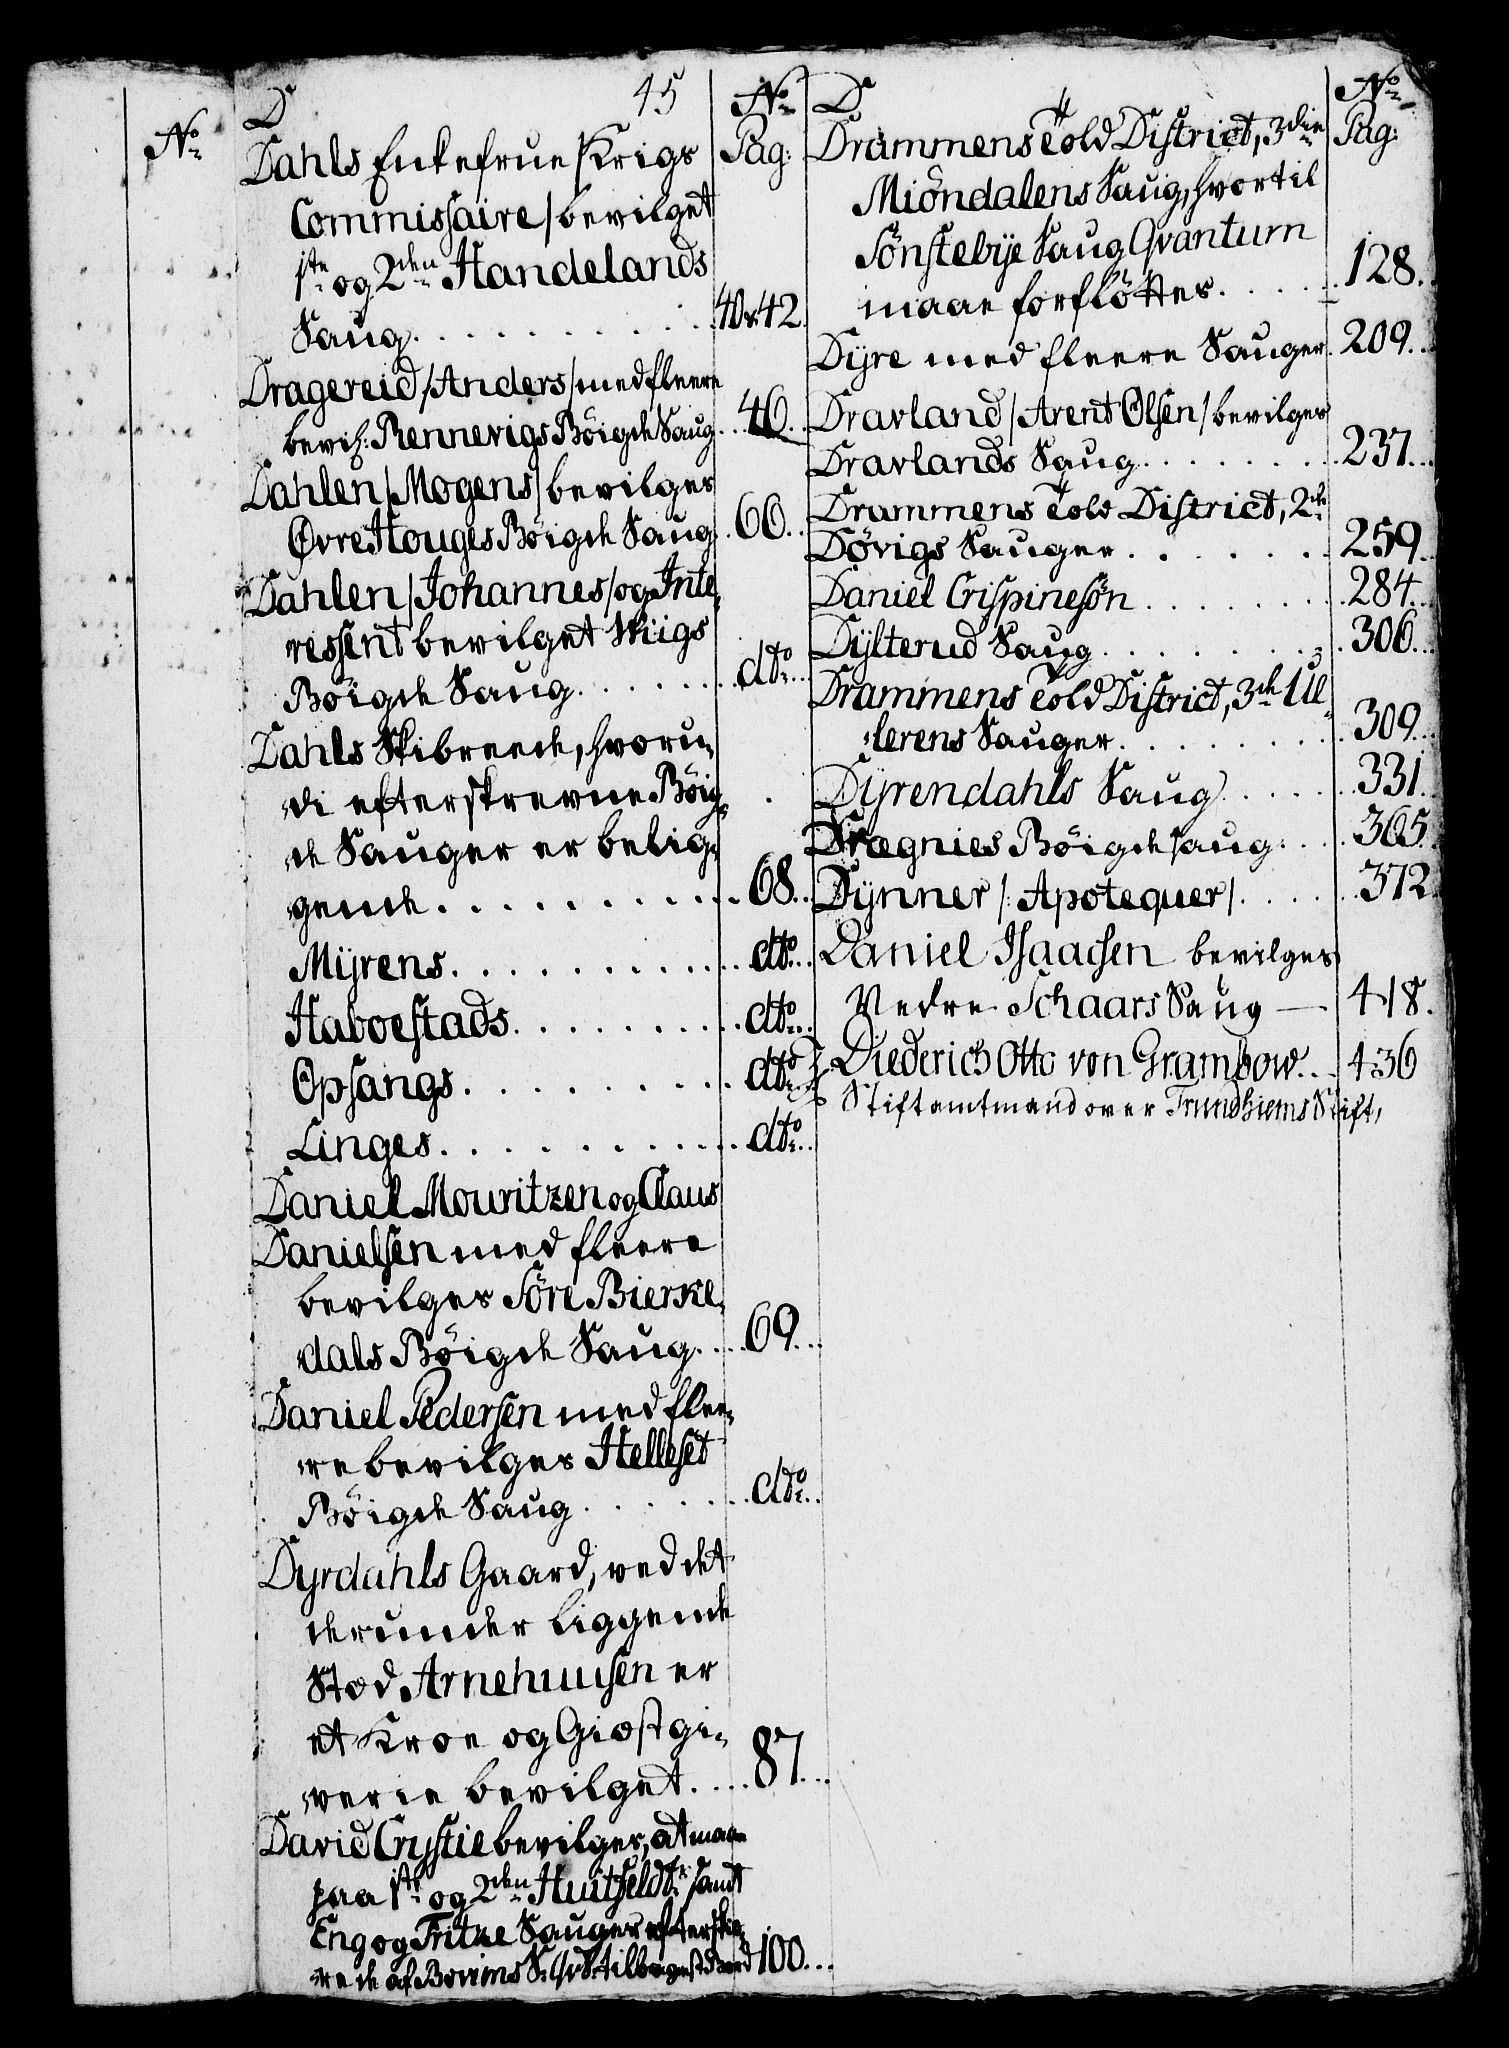 No
D
45
No
Pag:
Dahls Enkefrue /Krigs
Commissaire/ bevilget
1ste og 2den Handelands
Saug. . . . . . . . . . 40 & 42.
Dragereid /Anders/ med fleere
bevil: Rennevigs Böigde Saug. . . 46. .
Dahlen /Mogens/ bevilges
Øvre Houges Böigde Saug. . 60. .
Dahlen /Johannes/ og Inte,
ressent bevilget Wiigs
Böigde Saug. . . . . . . dto. . .
Dahls Skibreede, hvoru,
,di efterskrevne Böig,
,de Sauger er belig,
,gende. . . . . . . . . . 68. .
Mijrens. . . . . . . . . . dto. . .
Haboestads. . . . . . . . . dto. . .
Opsangs. . . . . . . . . . dto. . .
Linges. . . . . . . . . . dto. . .
Daniel Mouritzen og Claus
Danielsen med fleere
bevilges Söre Bierke,
,dals Böigde Saug. . . . 69. . .
Daniel Pedersen med flee,
,re bevilges Helleset
Böigde Saug. . . . . . . dto. . .
Dyrdahls Gaard, ved det
derunder liggende
Stæd Arnehuusen er
et Kroe og Giæstgi,
,verie bevilget. . . . 87. . .
David Crystie bevilges, at maae
paa 1ste og 2den Huitfeldts samt
Eng og Fritze Sauger efterskiæ,
,rede af 100. . .
D
No
Pag:
Drammens Told District, 3die
Miöndalens Saug, hvortil
Sönstebije Saug Qvantum
maae forflöttes. . . . . . 128. .
Dijre med fleere Sauger. 209. . .
Dravland /Arent Olsen/ bevilges
Dravlands Saug. . . . . . . . 237. . .
Drammens Told District, 2de
Dövigs Sauger. . . . . . . 259. .
Daniel Crispinesön. . . . . . . . 284. .
Dijlterud Saug. . . . . . . . 306. . .
Drammens Told District, 3de Ul,
,lerens Sauger. . . . . . . . 309. . .
Dijrendahls Saug. . . . . . 331. .
Drægnies Böigde saug. . . . 365. .
Dynner /: Apotequer/. . . . . . 372.
Daniel Isaachsen bevilges
Nedre Schaars Saug — 418.
Diederich Otto von Grambow. . . 436
Stiftamtmand over Trundhiems Stift,